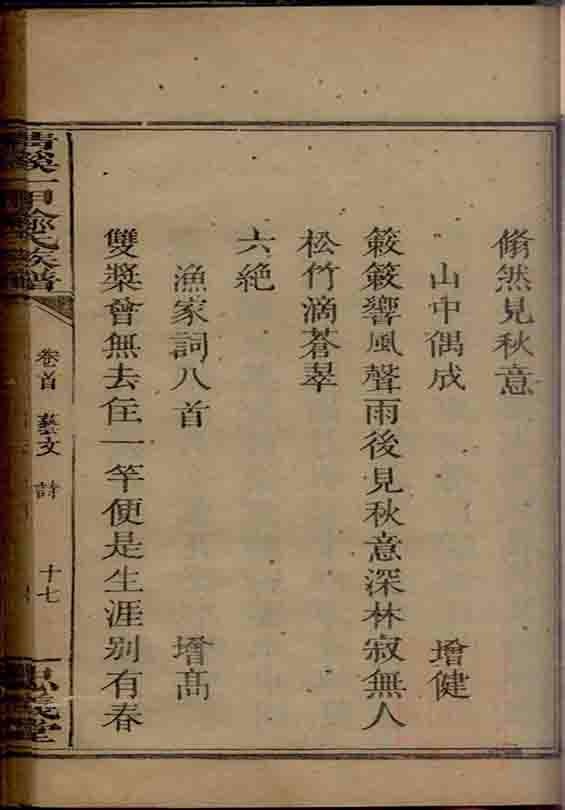 翛然見秋意
山中偶成 增健
簌簌響風聲雨後見秋意深林寂無人
松竹滴蒼翠
六絕
漁家詞八首 增高
雙槳曾無去住一竿便是生涯别有春
一甲 鄭氏族譜
卷首 藝文 詩 十七
忠義堂